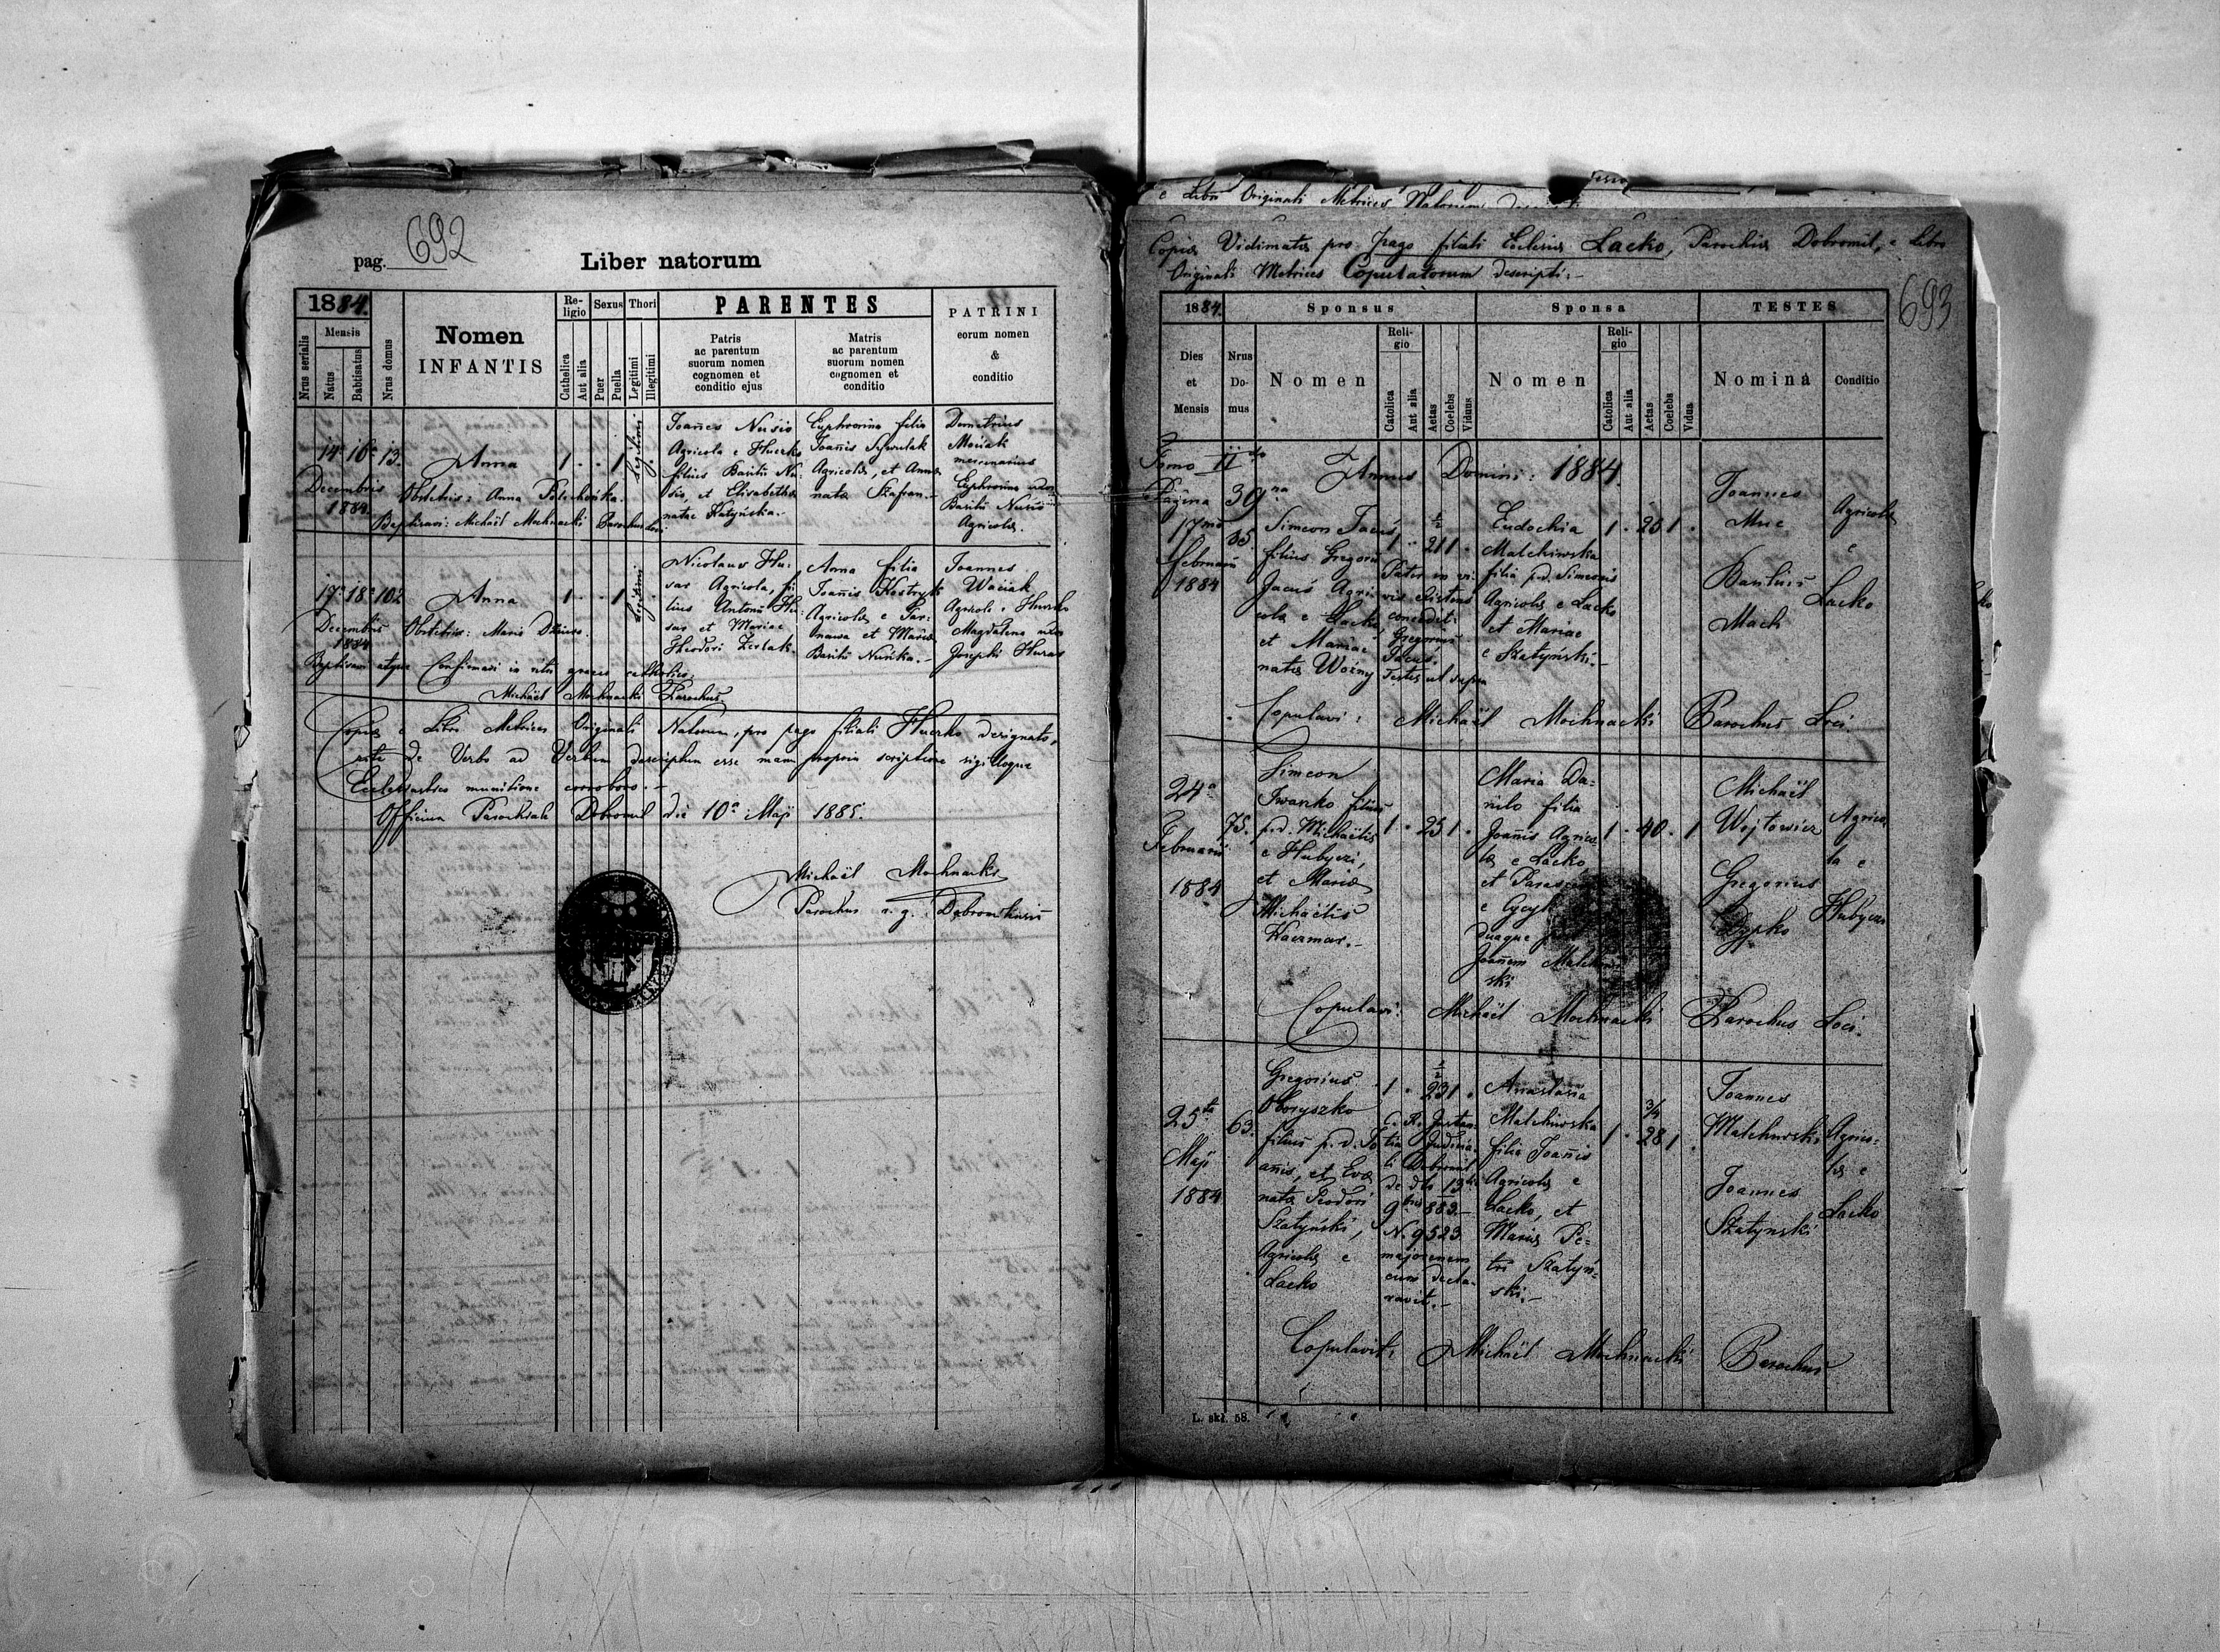 pag. 692
Liber natorum
1884.
Nrus serialis
Mensis
Natus
Babtisatus
Nrus domus
Nomen
INFANTIS
Re-
ligio
Catholica
Aut alia
Sexus
Puer
Puella
Thori
Legitimi
Illegitimi
PARENTES
Patris
ac parentum
suorum nomen
cognomen et
conditio ejus
Matris
ac parentum
suorum nomen
cognomen et
conditio
PATRINI
eorum nomen
&
conditio
14a 16a 13.
Decembris
1884.
Anna
1 . . 1
Legitimi
Obstetrix: Anna
Baptisavi: Michaël Mochnacki Parochus loci.
Joannes Nusio
Agricola e Huczko
filius Basilii Nu-
sio, et Elisabetha
natae Katyńska.-
Euphrosina filia
Joannis
Agricolae, et Anna
nata Szafran.-
Demetrius
Maciak
mercenarius
Euphrosina uxor
Basilii Nusio
Agricola.
17a 18a 102
Decembris
1884
Anna
1 . . 1 .
Legitimi
Obstetrix: Maria
Baptisavi atque Confirmavi in ritu graeco catholico.
Michaël Mochnacki Parochus.
Nicolaus Hu-
sar Agricola, fi-
lius Antonii Hu-
sar et Mariae
Theodori
Anna filia
Joannis Kostryk
Agricolae e Tar-
nawa et Maria
Basilii Nuśka.-
Joannes
Waciak
Agricola e Huczko
Magdalena uxor
Josephi Huras
Copia e Libri Metrices Originali Natorum, pro pago filiali Huczko designato,
rite de Verbo ad Verbum descriptum esse manu propria scriptione sigilloque
Ecclesiastico munitione corroboro.-
Officium Parochiale Dobromil die 10a Maji 1885.
Michaël Mochnacki
Parochus r. g. Dobromilensis
e Libri Originali Metrices Natorum
Copia Vidimata pro pago filiali Ecclesia Lacko, Parochia Dobromil, e Libro
Originali Metrices Copulatorum descripti.-
693
1884.
Dies
et
Mensis
Nrus
Do-
mus
Sponsus
Nomen
Reli-
gio
Catolica
Aut alia
Aetas
Coelebs
Viduus
Sponsa
Nomen
Reli-
gio
Catolica
Aut alia
Aetas
Coelebs
Vidua
TESTES
Nomina
Conditio
Tomo IIdo
Pagina 39na
Annus Domini: 1884.
17ma
Februarii
1884
35.
Simeon Jacuś,
filius Gregorii
Jacuś Agri-
cola e Lacko,
et Mariae
nata Woźny
1 . 21 1 .
Pater in vi-
vis existens
concedit:
Gregorius
Jacuś.
Testes ut supra
Eudochia
Malchiwska
filia p.d. Simeonis
Agricolae e Lacko
et Mariae
e Szatyński.-
1 . 25 1 .
Joannes
Muc
Basilius
Mach
Agricola
e
Lacko
Copulavi: Michaël Mochnacki Parochus Loci.
24a
Februarii
1884
75.
Simeon
Iwanko filius
p.d. Michaëlis
e Hubyczi,
et Maria
Michaëlis
Kaczmar.-
1 . 25 1 .
Maria Da-
nilo filia
Joannis Agrico-
lae e Lacko
et
e
Joannem Malchiw-
ski
1 . 40 . 1
Michaël
Wojtowicz
Gregorius
Dypko
Agrico-
la e
Hubyczi
Copulavi: Michaël Mochnacki Parochus Loci.
25ta
Maji
1884
63.
Gregorius
Oboryszko
filius p.d. Jo-
annis, et Eva
nata Teodori
Szatyński,
Agricola e
Lacko
1 . 23 1/2 1 .
C. R. Instan-
tia Judicia-
li Dobromil
de dto 13
9bris 883.-
N. 9523
majorenem
eum decla-
ravit.-
Anastasia
Malchiwska
filia Joannis
Agricola e
Lacko, et
Maria Pe-
tri Szatyń-
ski.-
1 . 28 3/4 1 .
Joannes
Malchiwski
Joannes
Szatynski
Agrico-
la e
Lacko
Copulavit: Michaël Mochnacki Parochus
L. skł. 58.